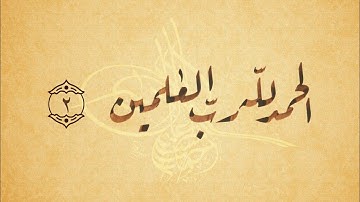 الحمد لله رب العلمين ٢